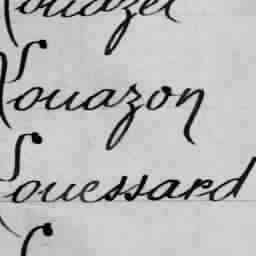 Louazel
Louazon
Louessard